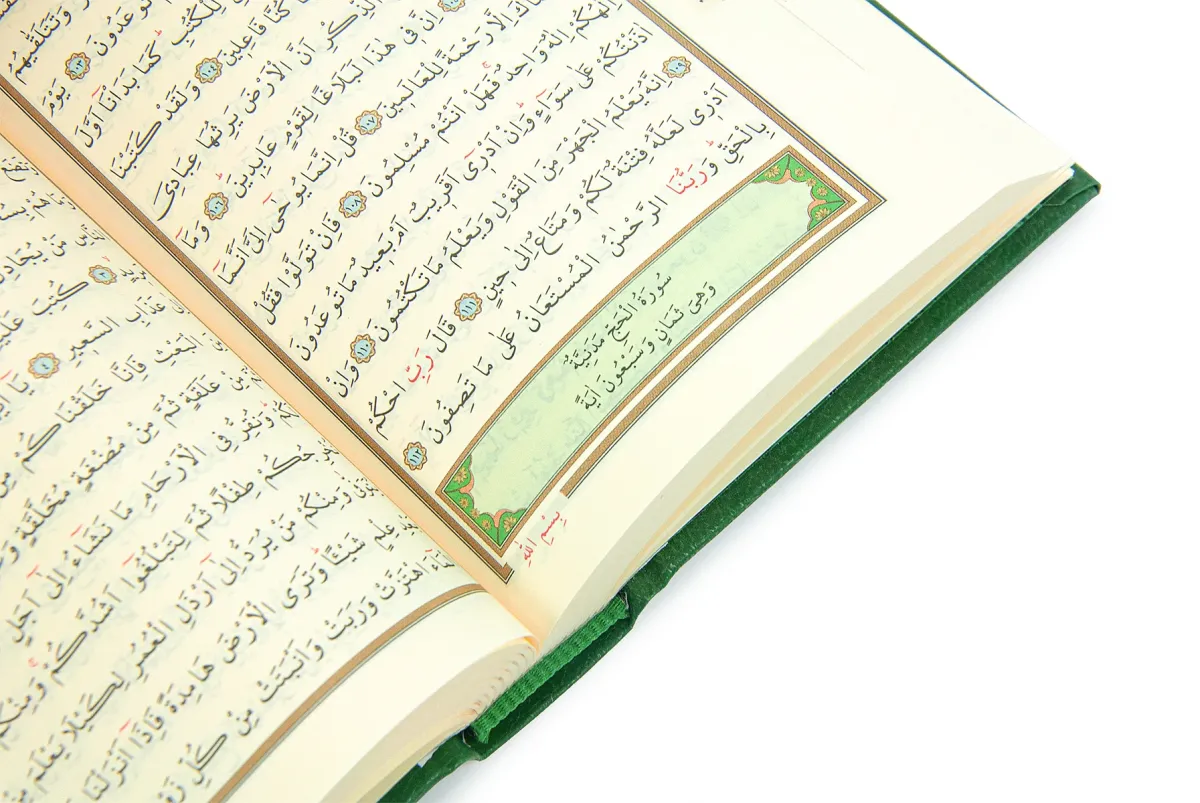 وَتَتَلَقّٰيهُمُ
تُوعَدُونَ ﴿١٠٣﴾ يَوْمَ
لِلْكُتُبِ كَمَا بَدَأْنَٓا اَوَّلَ
كُنَّا فَاعِلِينَ ﴿١٠٤﴾ وَلَقَدْ كَتَبْنَا
الذِّكْرِ اَنَّ الْاَرْضَ يَرِثُهَا عِبَادِىَ
اِنَّ فِى هٰذَا لَبَلَاغًا لِقَوْمٍ عَابِدِينَ ﴿١٠٦﴾ وَمَٓا
اِلَّا رَحْمَةً لِلْعَالَمِينَ ﴿١٠٧﴾ قُلْ اِنَّمَا يُوحٰٓى اِلَىَّ اَنَّمَٓا
اِلٰهُكُمْ اِلٰهٌ وَاحِدٌ فَهَلْ اَنْتُمْ مُسْلِمُونَ ﴿١٠٨﴾ فَاِنْ تَوَلَّوْا فَقُلْ
اٰذَنْتُكُمْ عَلٰى سَوَٓاءٍ وَاِنْ اَدْرٰٓى اَقَرِيبٌ اَمْ بَعِيدٌ مَا تُوعَدُونَ
﴿١٠٩﴾ اِنَّهُ يَعْلَمُ الْجَهْرَ مِنَ الْقَوْلِ وَيَعْلَمُ مَا تَكْتُمُونَ ﴿١١٠﴾ وَاِنْ
اَدْرٰى لَعَلَّهُ فِتْنَةٌ لَكُمْ وَمَتَاعٌ اِلٰى حِينٍ ﴿١١١﴾ قَالَ رَبِّ احْكُمْ
بِالْحَقِّ وَرَبُّنَا الرَّحْمٰنُ الْمُسْتَعَانُ عَلٰى مَا تَصِفُونَ ﴿١١٢﴾
سُورَةُ الْحَجِّ مَدَنِيَّةٌ
وَهِىَ ثَمَانٍ وَسَبْعُونَ اٰيَةً
بِسْمِ اللّٰهِ
مَنْ يُجَادِلُ
﴿٣﴾ كُتِبَ عَلَيْهِ
عَذَابِ السَّعِيرِ ﴿٤﴾ يَٓا اَيُّهَا
الْبَعْثِ فَاِنَّا خَلَقْنَاكُمْ مِنْ
مِنْ عَلَقَةٍ ثُمَّ مِنْ مُضْغَةٍ مُخَلَّقَةٍ
وَنُقِرُّ فِى الْاَرْحَامِ مَا نَشَٓاءُ اِلٰٓى اَجَلٍ
نُخْرِجُكُمْ طِفْلًا ثُمَّ لِتَبْلُغُٓوا اَشُدَّكُمْ وَمِنْكُمْ
وَمِنْكُمْ مَنْ يُرَدُّ اِلٰٓى اَرْذَلِ الْعُمُرِ لِكَيْلَا يَعْلَمَ مِنْ
عِلْمٍ شَيْـًٔا وَتَرَى الْاَرْضَ هَامِدَةً فَاِذَٓا اَنْزَلْنَا
الْمَٓاءَ اهْتَزَّتْ وَرَبَتْ وَاَنْبَتَتْ مِنْ كُلِّ